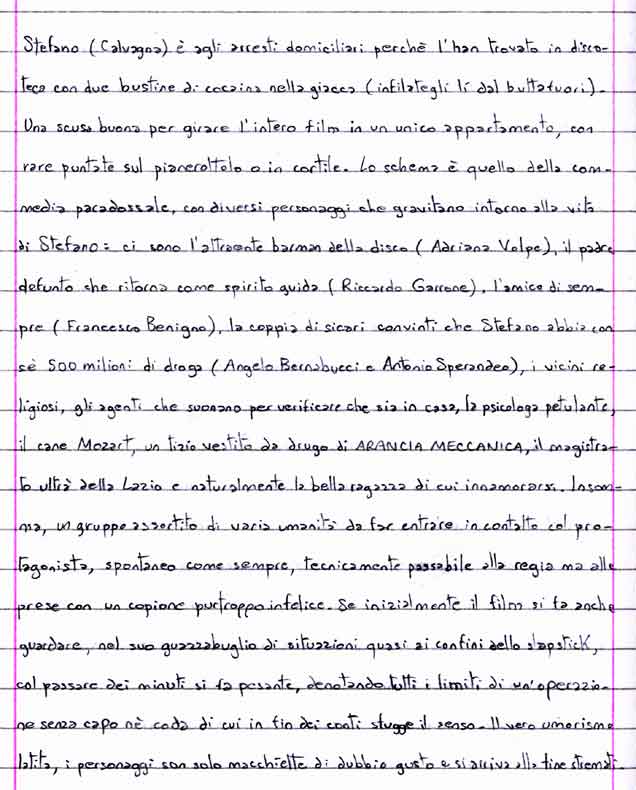 Stefano (Calvagna) è agli arresti domiciliari perchè l'han trovato in disco-
teca con due bustine di cocaina nella giacca (infilategli lì dal buttafuori).
Una scusa buona per girare l'intero film in un unico appartamento, con
rare puntate sul pianerottolo o in cortile. Lo schema è quello della com-
media paradossale, con diversi personaggi che gravitano intorno alla vita
di Stefano: ci sono l'attraente barman della disco (Adriana Volpe), il padre
defunto che ritorna come spirito guida (Riccardo Garrone), l'amico di sem-
pre (Francesco Benigno), la coppia di sicari convinti che Stefano abbia con
sè 500 milioni di droga (Angelo Bernabucci e Antonio Sperandeo), i vicini re-
ligiosi, gli agenti che suonano per verificare che sia in casa, la psicologa petulante,
il cane Mozart, un tizio vestito da drugo di ARANCIA MECCANICA, il magistra-
to ultrà della Lazio e naturalmente la bella ragazza di cui innamorarsi. Insom-
ma, un gruppo assortito di varia umanità da far entrare in contatto col pro-
tagonista, spontaneo come sempre, tecnicamente passabile alla regia ma alle
prese con un copione purtroppo infelice. Se inizialmente il film si fa anche
guardare, nel suo guazzabuglio di situazioni quasi ai confini dello slapstick,
col passare dei minuti si fa pesante, denotando tutti i limiti di un'operazio-
ne senza capo nè coda di cui in fin dei conti sfugge il senso. Il vero umorismo
latita, i personaggi son solo macchiette di dubbio gusto e si arriva alla fine stremati.